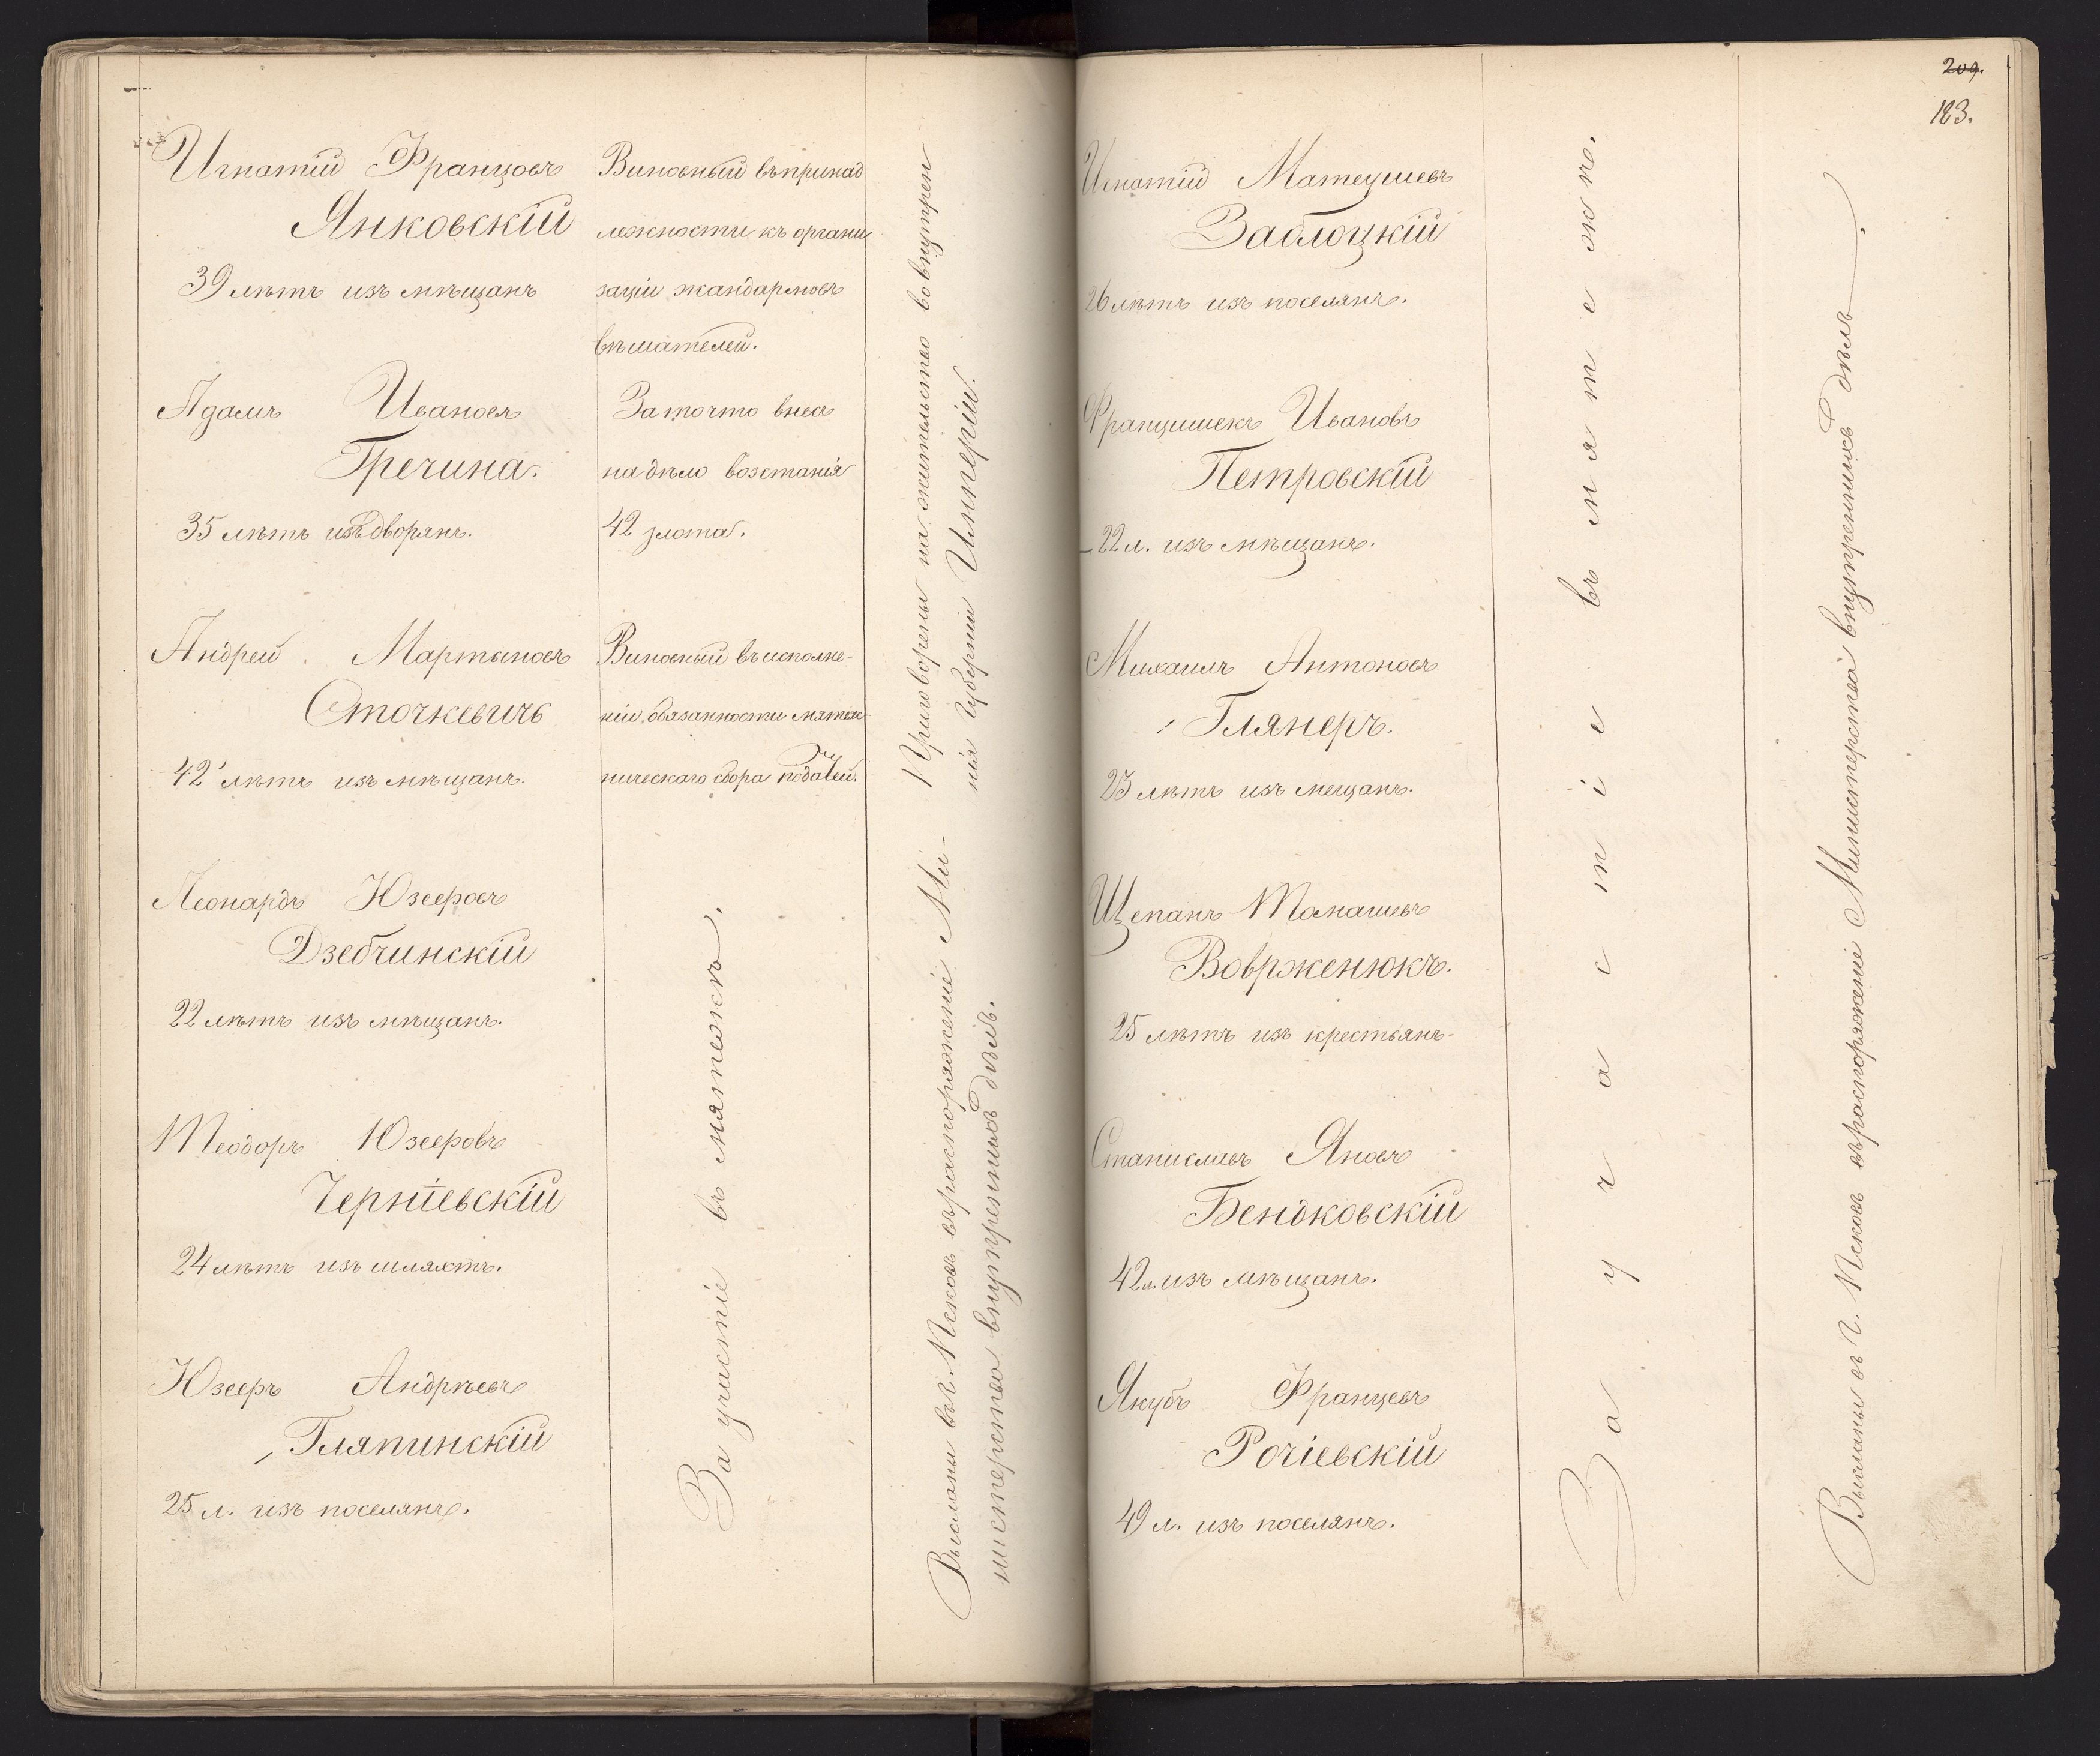 Игнатій Францовъ
Янковскій
39 лѣтъ изъ мѣщанъ
Виновный въ принад
лежности къ органи
заціи жандармовъ
вѣшателей.
Адамъ Ивановъ
Гречина.
35 лѣтъ изъ дворянъ.
За то что внесъ
на дѣло возстанія
42 злота.
Андрей Мартыновъ
Сточкевичъ
42 лѣтъ изъ мѣщанъ.
Виновный въ исполне-
ніи обязанности мятеж-
ническаго сбора податей.
Приговорены на жительство во внутрен
нія губерніи Имперіи.
Леонардъ Юзефовъ
Дзебчинскій
22 лѣтъ изъ мѣщанъ.
Теодоръ Юзефовъ
Черніевскій
24 лѣтъ изъ шляхтъ.
Юзефъ Андрѣевъ
Гляпинскій
25 л. изъ поселянъ.
За участіе въ мятежѣ.
Высланы въ г. Псковъ въ распоряженіе Ми-
нистерства внутреннихъ дѣлъ.
209.
183.
Игнатій Матеушевъ
Заблоцкій
26 лѣтъ изъ поселянъ.
Францишекъ Ивановъ
Петровскій
22 л. изъ мѣщанъ.
Михаилъ Антоновъ
Глянеръ.
23 лѣтъ изъ мещанъ.
Щепанъ Томашевъ
Воврженюкъ.
25 лѣтъ изъ крестьянъ
Станиславъ Яновъ
Бендковскій
42 л. изъ мѣщанъ.
Якубъ Францевъ
Рочіевскій
49 л. изъ поселянъ.
За участіе въ мятежѣ.
Высланы въ г. Псковъ въ распоряженіе Министерства внутреннихъ дѣлъ.